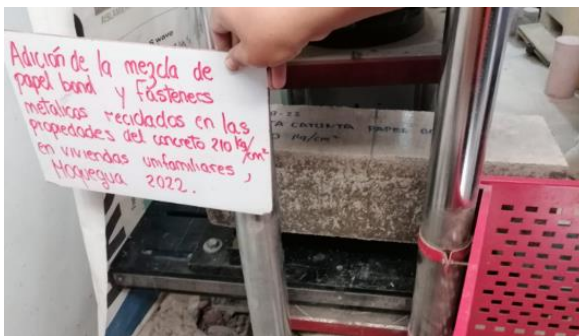 Adición de la mezcla de
papel bond y Fásteners
metalicos reciclados en las
propiedades del concreto 210 kg/cm²
en viviendas unifamiliares,
Moquegua 2022.
PAPEL
kg/cm²